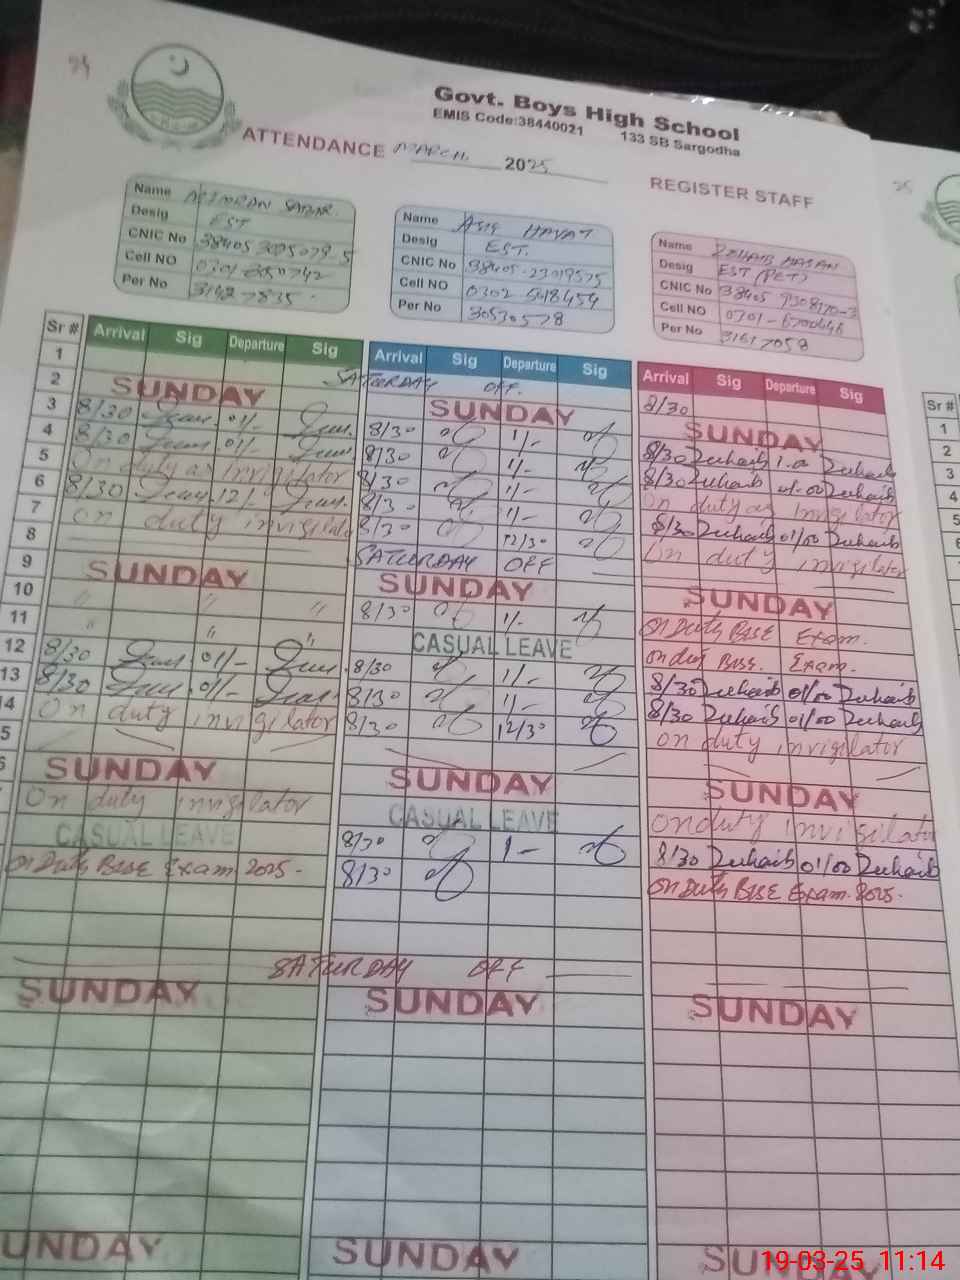 Govt. Boys High School
EMIS Code:38440021 133 SB Sargodha
ATTENDANCE MARCH 2025 REGISTER STAFF
Name
Desig EST
CNIC No
Cell NO
Per No
Name ASIF HAYAT
Desig EST.
CNIC No 38405-23019575
Cell NO 0302 5018454
Per No 30530578
Name ZOHAIB HASAN
Desig EST (PET)
CNIC No
Cell NO
Per No 31617058
Sr # Arrival Sig Departure Sig Arrival Sig Departure Sig Arrival Sig Departure Sig Sr #
1 SATURDAY OFF. 8/30
2 SUNDAY SUNDAY SUNDAY
3 8/30 01/- 8/30 1/- 8/30 Zuhaib 1.00 Zuhaib
4 8/30 01/- 8/30 1/- 8/30 Zuhaib 01-00 Zuhaib
5 On duty as invigilator 8/30 1/- On duty as invigilator
6 8/30 12/- 8/30 1/- 8/30 Zuhaib 01/00 Zuhaib
7 On duty invigilator 8/30 12/30 On duty invigilator
8 SATURDAY OFF
9 SUNDAY SUNDAY SUNDAY
10 " " " 8/30 1/- On Duty BISE Exam.
11 " " " CASUAL LEAVE on duty BISE. Exam.
12 8/30 01/- 8/30 1/- 8/30 Zuhaib 01/00 Zuhaib
13 8/30 01/- 8/30 1/- 8/30 Zuhaib 01/00 Zuhaib
14 On duty invigilator 8/30 12/30 on duty invigilator
5
6 SUNDAY SUNDAY SUNDAY
On duty invigilator CASUAL LEAVE On duty invigilator
CASUAL LEAVE 8/30 1- 8/30 Zuhaib 01/00 Zuhaib
on Duty BISE Exam 2025. 8/30 on Duty BISE Exam. 2025.
SATURDAY OFF
SUNDAY SUNDAY SUNDAY
SUNDAY SUNDAY SUNDAY
19-03-25 11:14